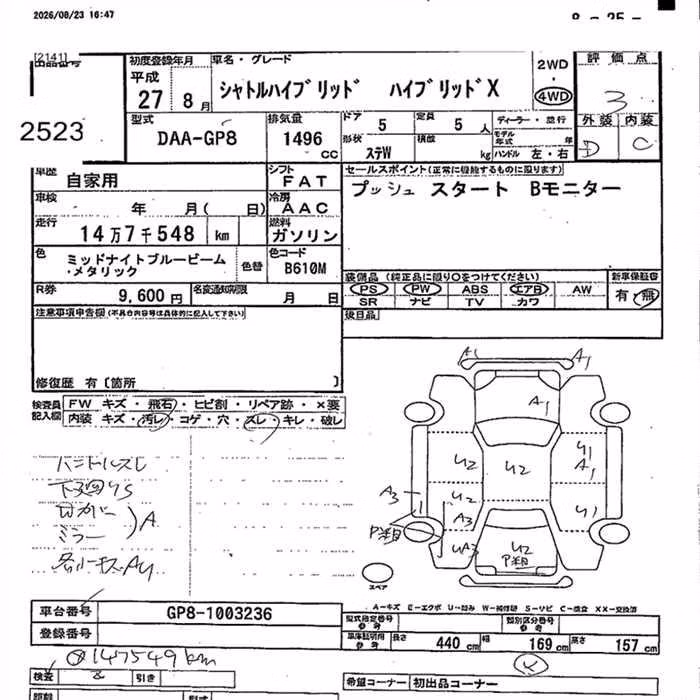 2026/08/23 16:47
[2141]
2523
初度登録年月
平成
27 8月
車名・グレード
シャトルハイブリッド ハイブリッドX
2WD
・
4WD
評価点
3
外装 内装
D C
型式
DAA-GP8
排気量
1496 CC
ドア 5
定員 5 人
形状 ステW
積載 kg
ディーラー・並行
モデル年式 年
ハンドル 左・右
車歴
自家用
シフト
FAT
車検
年 月( 日)
冷房
AAC
走行
14万7千548 km
燃料
ガソリン
色
ミッドナイトブルービーム
・メタリック
色替
色コード
B610M
R券
9,600 円
名変通知期限
月 日
セールスポイント(正常に機能するものに限ります)
プッシュ スタート Bモニター
装備品 (純正品に限り○をつけてください)
PS PW ABS エアB AW
SR ナビ TV カワ
新車保証書
有・無
後日品
注意事項申告欄(不具合内容等は具体的に記入して下さい)
修復歴 有〔箇所 〕
検査員記入欄
FW キズ・飛石・ヒビ割・リペア跡・×要
内装 キズ・汚レ・コゲ・穴・スレ・キレ・破レ
ハンドルスレ
下廻りS
ミラー
A
A1
A1
A1
U2
U2
U1
A1
A3
U2
A3
U1
UA3
U2
スペア
A―キズ E―エクボ U―凹み W―補修跡 S―サビ C―腐食 XX―交換済
車台番号
GP8-1003236
登録番号
型式指定番号
参考
類別区分番号
参考
車庫証明用
参考
長さ 440 cm
幅 169 cm
高さ 157 cm
147549km
検査
引き
希望コーナー
初出品コーナー